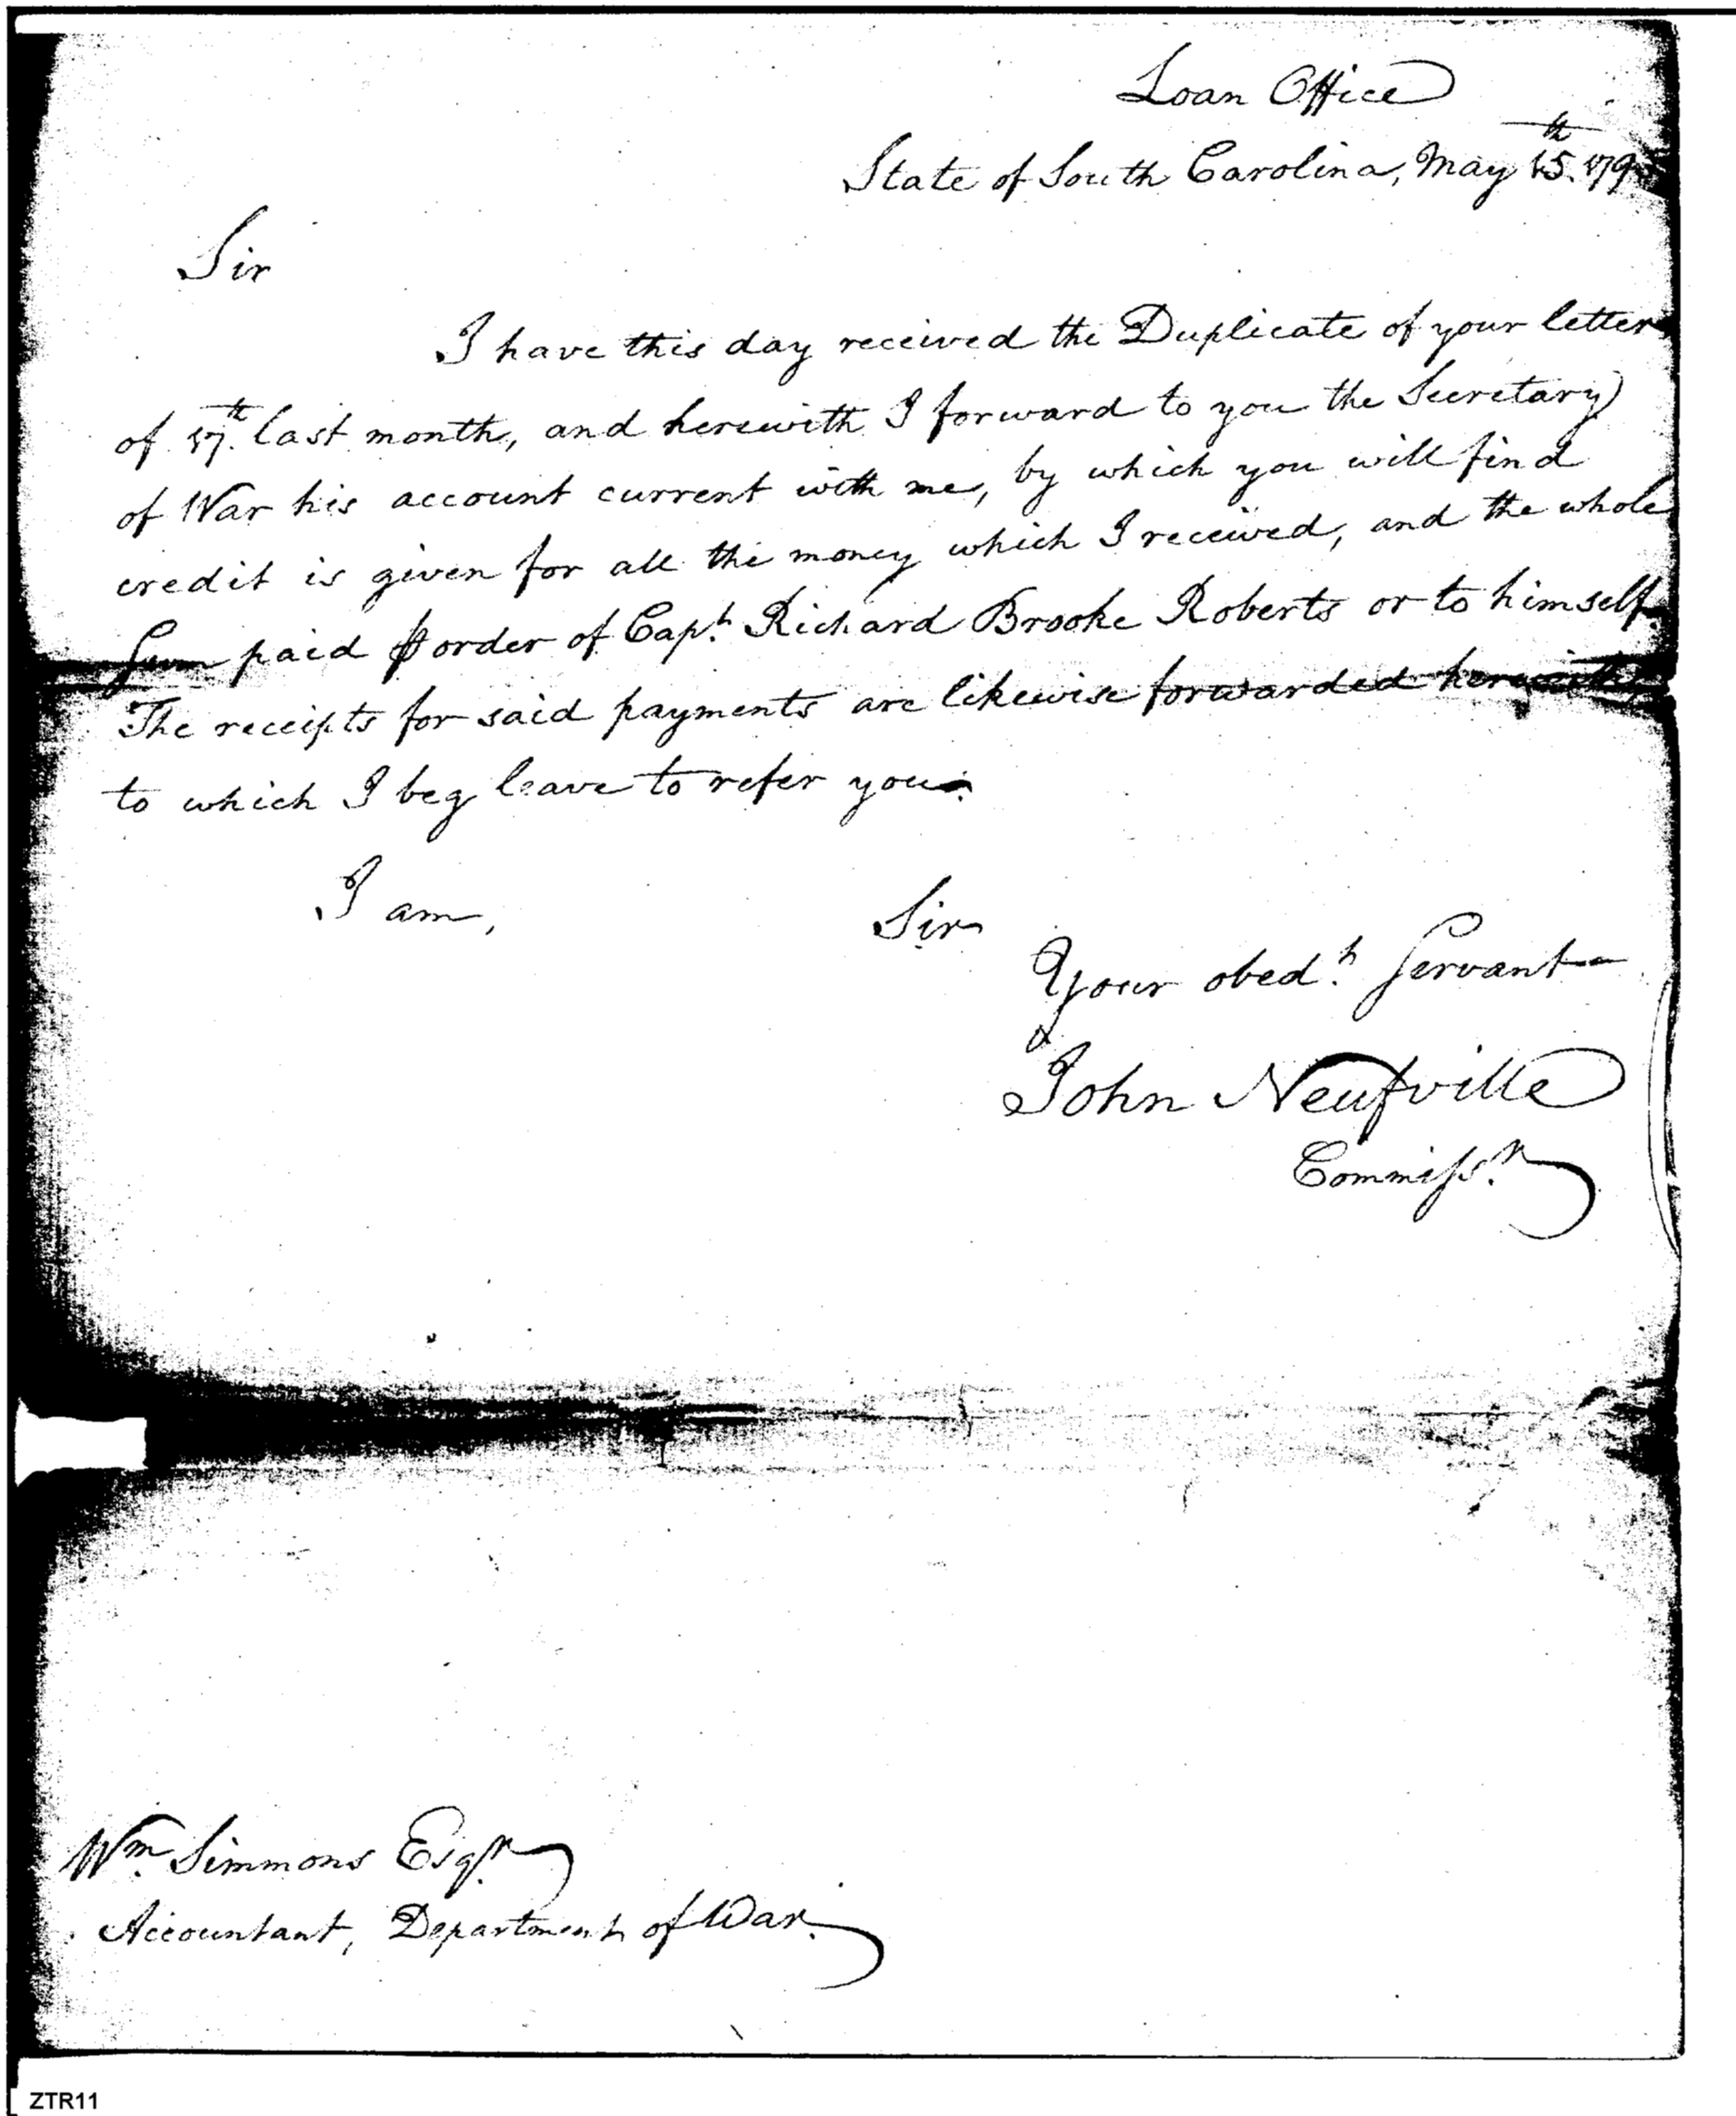 Loan Office
State of South Carolina, May 15th. 179
Sir
I have this day received the Duplicate of your letter
of 17th. last month, and herewith I forward to you the Secretary
of War his account current with me, by which you will find
credit is given for all the money which I received, and the whole
Sum paid ⅌ order of Capt. Richard Brooke Roberts or to himself.
The receipts for said payments are likewise forwarded herewith
to which I beg leave to refer you.
I am,
Sir
Your obedt. Servant
John Neufville
Commissr.
Wm. Simmons Esqr.
Accountant, Department of War.
ZTR11